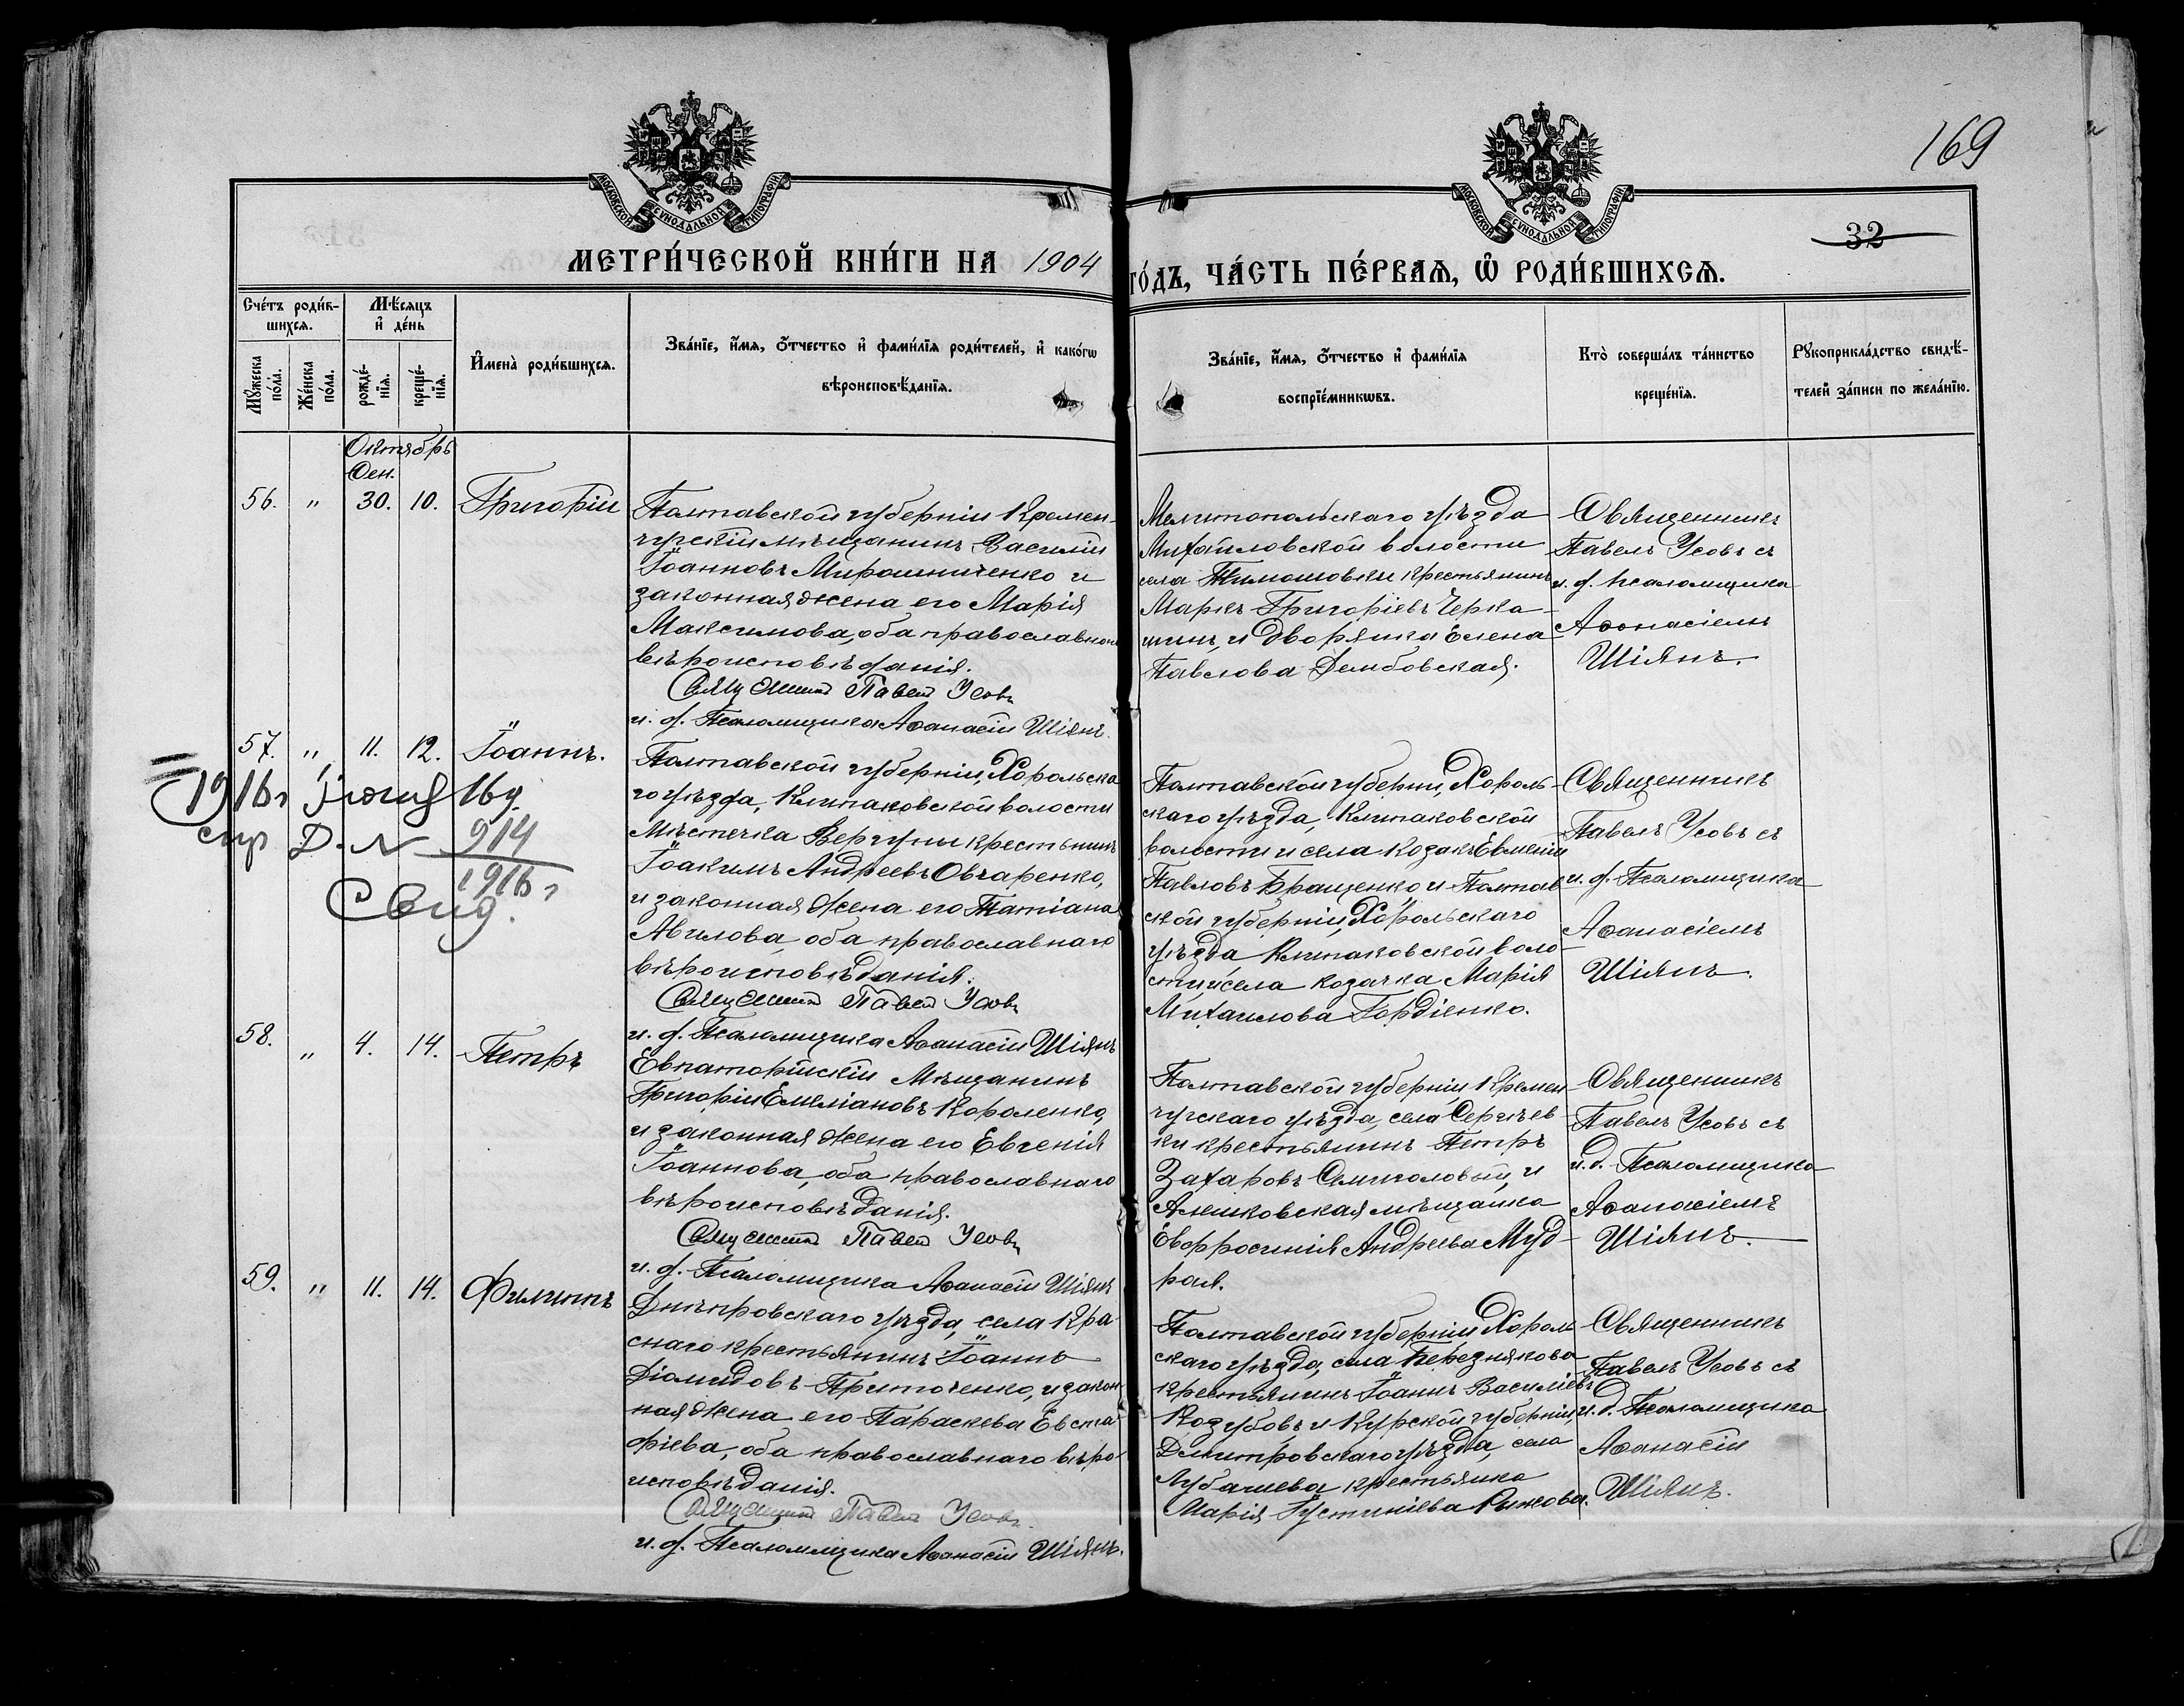 169
МОСКОВСКОЙ СѴНОДАЛЬНОЙ ТИПОГРАФІИ
МОСКОВСКОЙ СѴНОДАЛЬНОЙ ТИПОГРАФІИ
32
МЕТРИ́ЧЕСКОЙ КНИ́ГИ НА 1904
ГО́ДЪ, ЧА́СТЬ ПЕ́РВАѦ, Ѽ РОДИ́ВШИХСѦ.
Сче́тъ роди́в-
шихсѧ.
Мꙋ́жеска по́ла.
Же́нска по́ла.
Мѣ́сяцъ
и҆ де́нь
рожде́-
нїѧ.
креще́-
нїѧ.
И҆мена̀ роди́вшихсѧ.
Зва́нїе, и҆́мѧ, ѻ҆́тчество и҆ фами́лїѧ роди́телей, и҆ како́гѡ
вѣроисповѣ́данїѧ.
Зва́нїе, и҆́мѧ, ѻ҆́тчество и҆ фами́лїѧ
воспрїе́мникѡвъ.
Кто̀ соверша́лъ та́инство
креще́нїѧ.
Рꙋкоприкла́дство свидѣ́-
телей за́писи по жела́нїю.
Октябрь
Сен.
56. " 30. 10. Григорій
Полтавской губерніи Кремен-
чугскій мѣщанинъ Василій
Іоанновъ Мирошниченко и
законная жена его Марія
Максимова, оба православнаго
вѣроисповѣданія.
Священникъ Павелъ Усовъ
и. д. Псаломщика Аѳанасій Шіянъ.
Мелитопольскаго уѣзда
Михайловской волости
села Тимошовки крестьянинъ
Маркъ Григоріевъ Черка-
шинъ, и дворянка Елена
Павлова Дембовская.
Священникъ
Павелъ Усовъ съ
и. д. псаломщика
Аѳонасіемъ
Шіянъ.
57. " 11. 12. Іоаннъ.
1916 г Іюния 16 д.
спр Д. N 914
1916 г
Свид.
Полтавской губерніи, Хорольска
го уѣзда, Клипаковской волости
мѣстечка Вергуны крестьянинъ
Іоакимъ Андреевъ Овчаренко,
и законная жена его Татіана
Авилова, оба православнаго
вѣроисповѣданія.
Священникъ Павелъ Усовъ
и. д. Псаломщика Аѳанасій Шіянъ
Полтавской губерни, Хороль-
скаго уѣзда, Клипаковской
волости и села козакъ Евмений
Павловъ Бращенко, и Полтав-
ской губерніи, Хорольскаго
уѣзда Клипаковской воло-
сти и села козачка Марія
Михаилова Гордіенко.
Священникъ
Павелъ Усовъ съ
и. д. Псаломщика
Аѳанасіемъ
Шіянъ.
58. " 4. 14. Петръ
Евпаторійскій мѣщанинъ
Григорій Емеліановъ Короленко,
и законная жена его Евгенія
Іоаннова, оба православнаго
вѣроисповѣданія.
Священникъ Павелъ Усовъ
и. д. Псаломщика Аѳанасій Шіянъ
Полтавской губерніи, Кремен
чугскаго уѣзда, села Сергѣев
ки крестьянинъ Петръ
Захаровъ Семиголовый, и
Алешковская мѣщанка
Евфросинія Андреева Муд-
рая.
Священникъ
Павелъ Усовъ съ
и. д. Псаломщика
Аѳанасіемъ
Шіянъ.
59. " 11. 14. Филиппъ
Днѣпровскаго уѣзда, села Кра-
снаго крестьянинъ Іоаннъ
Діомидовъ Приточенко, и закон-
ная жена его Параскева Евста-
фіева, оба православнаго вѣро-
исповѣданія.
Священникъ Павелъ Усовъ
и. д. Псаломщика Аѳанасій Шіянъ.
Полтавской губерніи Хороль
скаго уѣзда, села Березнякова
крестьянинъ Іоаннъ Василіевъ
Козубовъ, и Курской губерніи,
Дмитровскаго уѣзда, села
Лубашева крестьянка
Марія Іустиніева Рыжова.
Священникъ
Павелъ Усовъ съ
и. д. Псаломщика
Аѳанасій
Шіянъ.